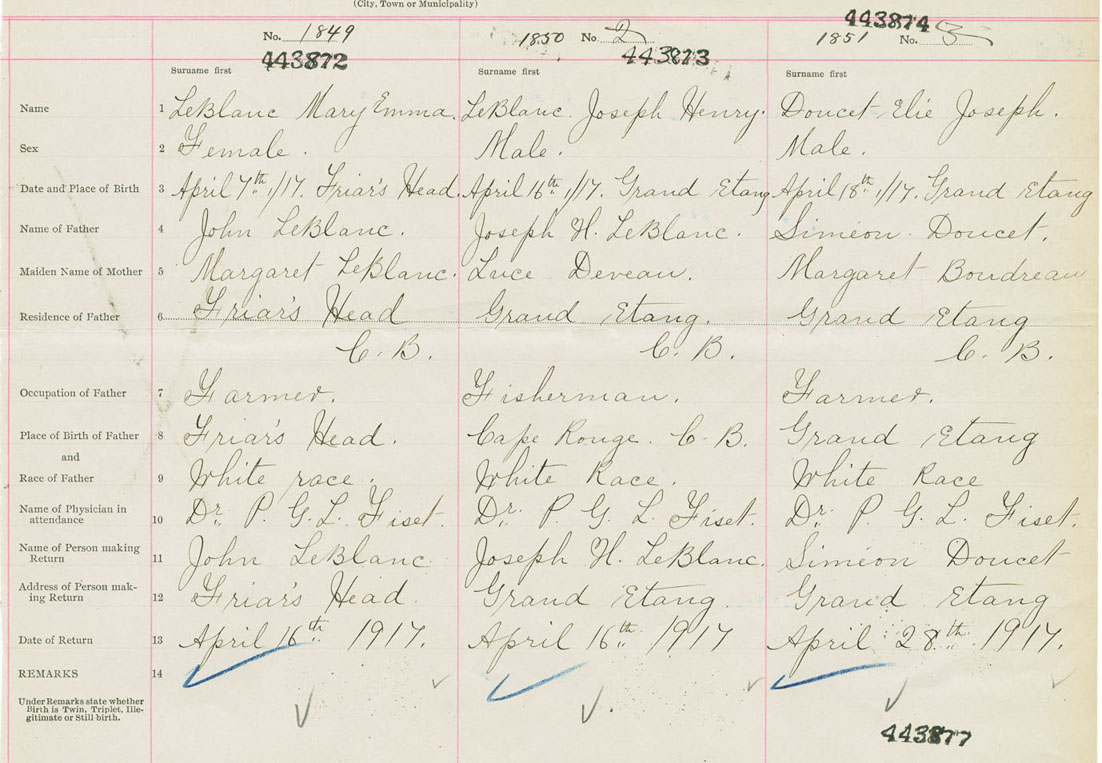 (City, Town or Municipality)
443874
No. 1849 1850 No. 2 1851 No. 3
443872 443873
Surname first Surname first Surname first
Name 1 LeBlanc Mary Emma. LeBlanc Joseph Henry. Doucet Elie Joseph.
Sex 2 Female. Male. Male.
Date and Place of Birth 3 April 7th 1/17. Friar's Head. April 16th 1/17. Grand Etang April 18th 1/17. Grand Etang
Name of Father 4 John LeBlanc. Joseph H. LeBlanc. Simeon Doucet.
Maiden Name of Mother 5 Margaret LeBlanc. Luce Deveau. Margaret Boudreau
Residence of Father 6 Friar's Head Grand Etang. Grand Etang
C. B. C. B. C. B.
Occupation of Father 7 Farmer. Fisherman. Farmer.
Place of Birth of Father 8 Friar's Head. Cape Rouge. C. B. Grand Etang
and
Race of Father 9 White race. White Race. White Race
Name of Physician in
attendance 10 Dr. P. G. L. Fiset. Dr. P. G. L. Fiset. Dr. P. G. L. Fiset.
Name of Person making
Return 11 John LeBlanc Joseph H. LeBlanc. Simeon Doucet
Address of Person mak-
ing Return 12 Friar's Head. Grand Etang. Grand Etang
Date of Return 13 April 16th 1917. April 16th 1917 April 28th 1917.
REMARKS 14
Under Remarks state whether
Birth is Twin, Triplet, Ille-
gitimate or Still birth.
443877